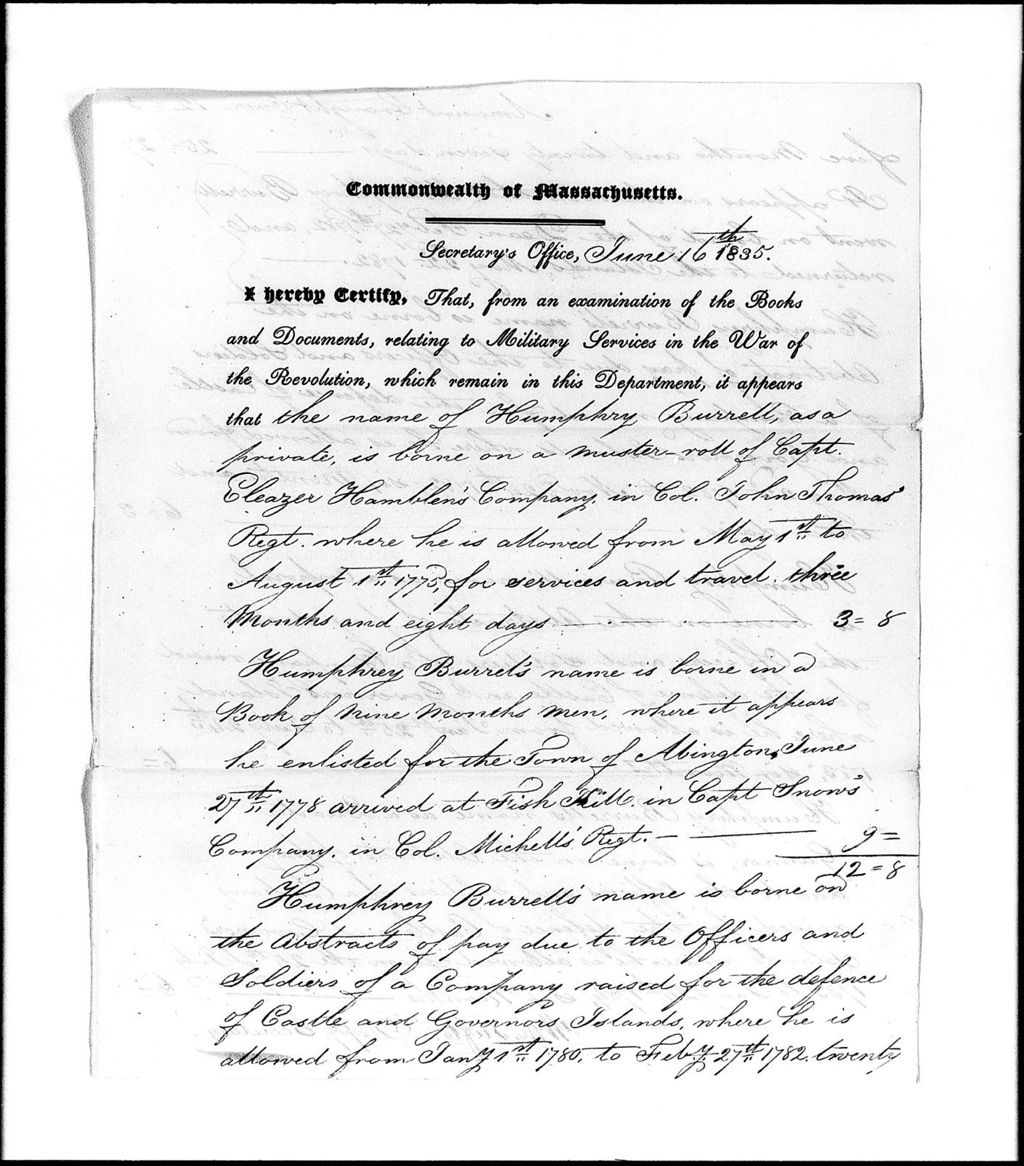 Commonwealth of Massachusetts.
Secretary's Office, June 16th 1835.
I hereby Certify, That, from an examination of the Books
and Documents, relating to Military Services in the War of
the Revolution, which remain in this Department, it appears
that the name of Humphry Burrell, as a
private, is borne on a muster-roll of Capt.
Eleazer Hamblen's Company, in Col. John Thomas'
Regt. where he is allowed from May 1st to
August 1st 1775, for services and travel. three
Months and eight days 3=8
Humphrey Burrel's name is borne in a
Book of Nine Months Men, where it appears
he enlisted for the Town of Abington, June
27th 1778 arrived at Fish Kill. in Capt Snow's
Company. in Col. Michell's Regt. 9=
12=8
Humphrey Burrell's name is borne on
the Abstracts of pay due to the Officers and
Soldiers of a Company raised for the defence
of Castle and Governors Islands, where he is
allowed from Jany 1st 1780, to Feby 27th 1782. twenty